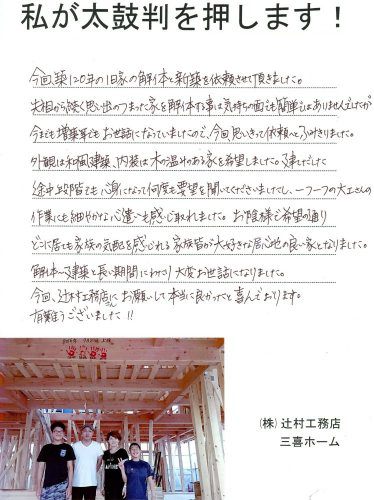 私が太鼓判を押します！
今回、築120年の旧家の解体と新築を依頼させて頂きました。
先祖から続く思い出のつまった家を解体する事は気持ちの面でも簡単ではありませんでしたが
今までも増築等でもお世話になっていましたので、今回思いきって依頼へとふみきりました。
外観は和風建築、内装は木の温かみのある家を希望しました。建てだした
途中段階でも親身になって何度も要望を聞いてくださいましたし、一つ一つの大工さんの
作業にも細やかな心遣いを感じ取れました。お陰様で希望の通り
どこに居ても家族の気配を感じれる家族皆が大好きな居心地の良い家となりました。
解体〜建築と長い期間にわたり大変お世話になりました。
今回、辻村工務店さんにお願いして本当に良かったと喜んでおります。
有難うございました!!
(株)辻村工務店
三喜ホーム